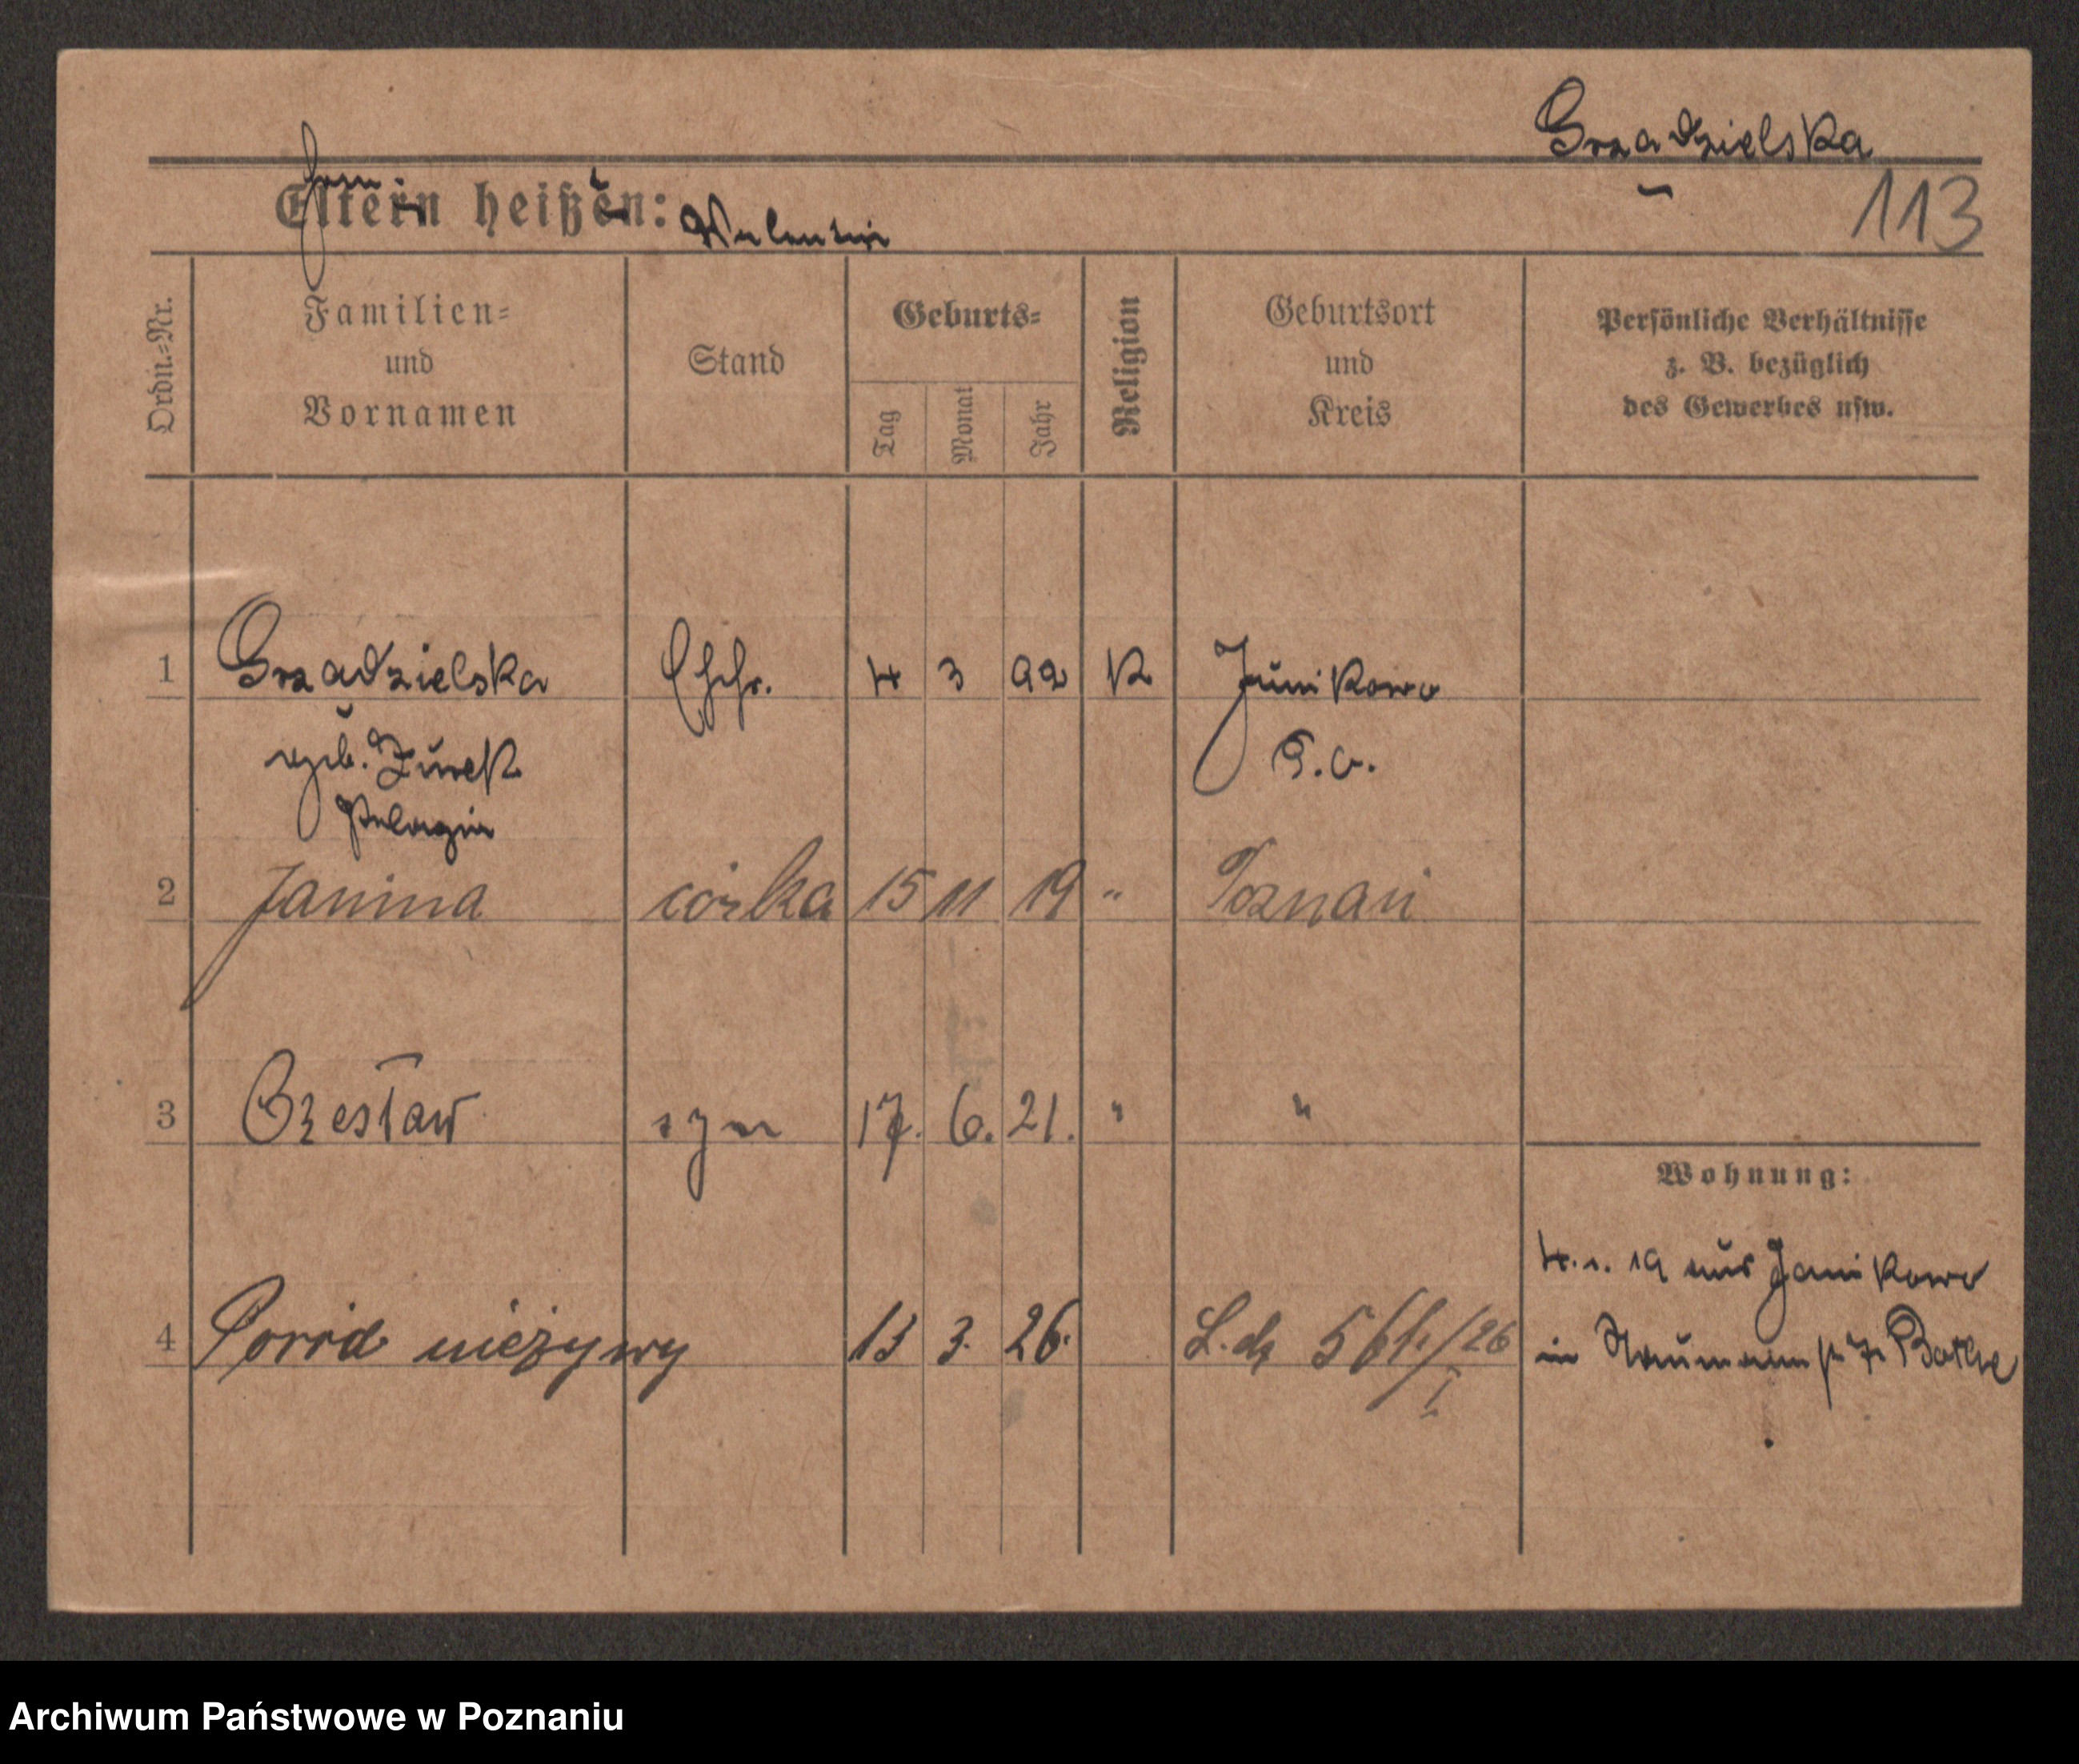 Grzadzielska
Eltern heißen:
113
Ordn.-Nr.
Familien-
und
Vornamen
Stand
Geburts-
Tag
Monat
Jahr
Religion
Geburtsort
und
Kreis
Persönliche Verhältnisse
z. B. bezüglich
des Gewerbes usw.
1 Grzadzielska Ehfr. 4 3 92 K Junikowo
geb. Zurek P.O.
Pelagia
2 Janina córka 15 11 19 " Poznań
3 Czesław syn 17. 6. 21. " "
Wohnung:
4. 1. 19 aus Junikowo
4 Poród nieżywy 13 3. 26. L.dz 561/26
in Naumann 7 Bothe
I
Archiwum Państwowe w Poznaniu